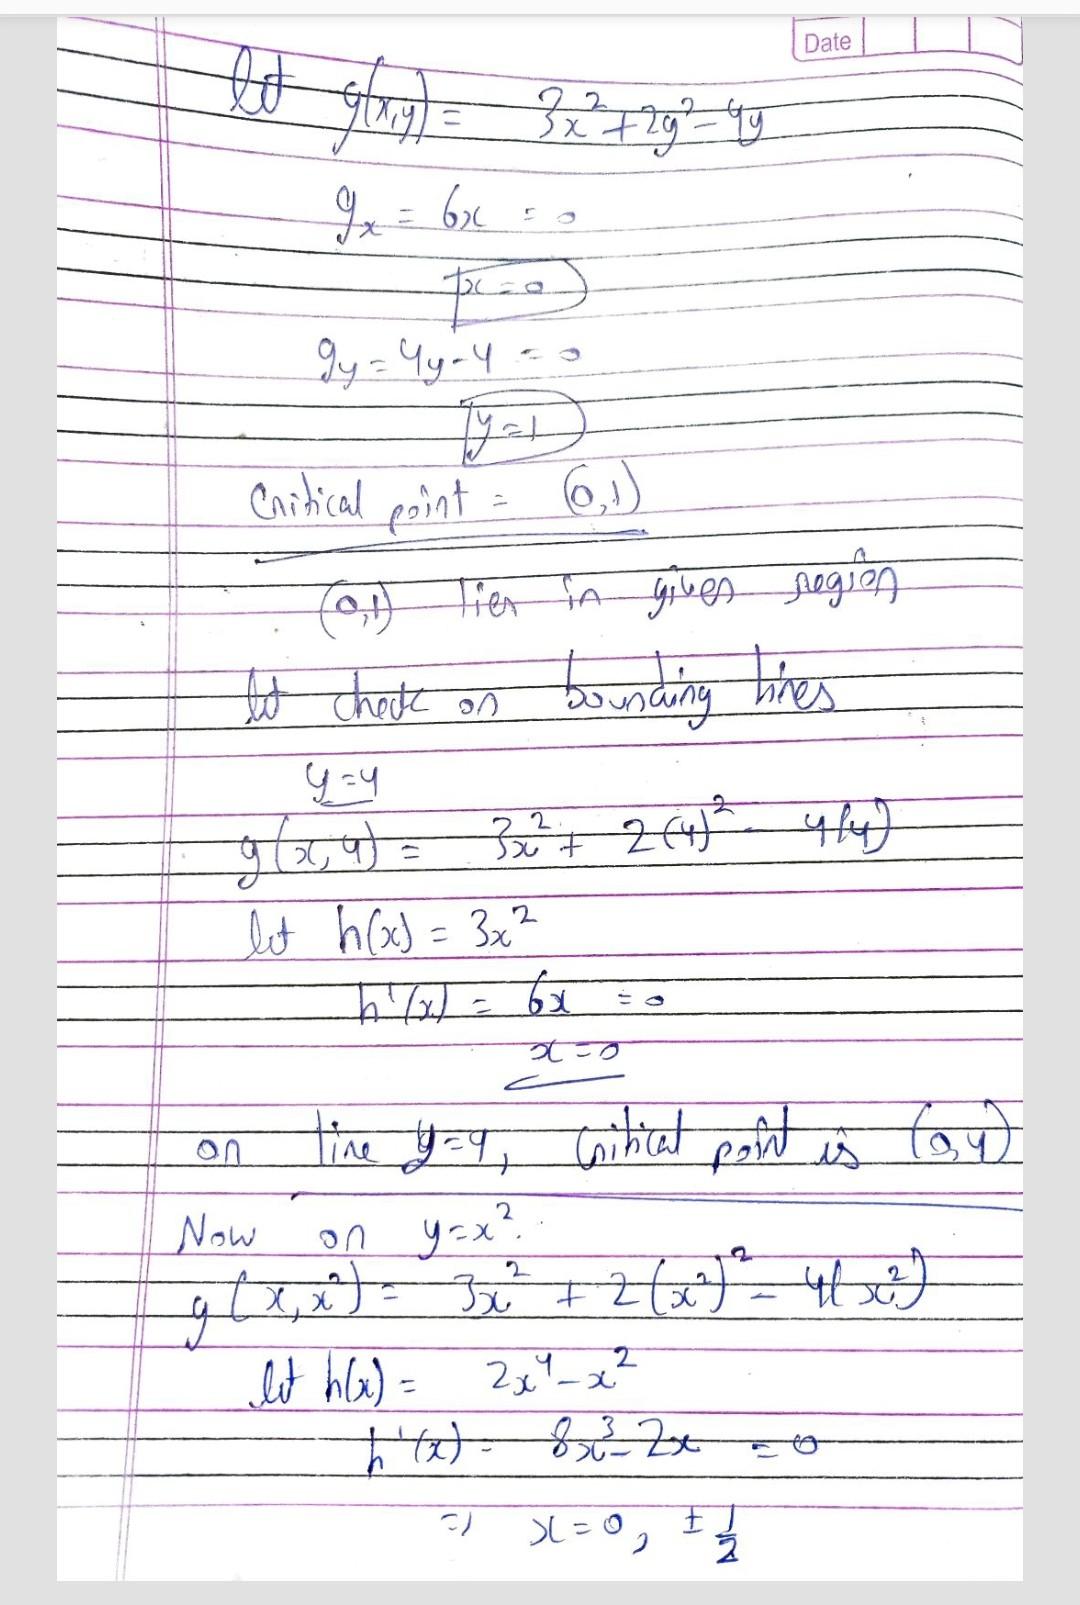 Date
let g(x,y) = 3x²+2y²-4y
gx = 6x = 0
x=0
gy = 4y-4 = 0
y=1
Critical point = (0,1)
(0,1) lies in given region
let check on bounding lines
y=4
g(x,4) = 3x²+ 2(4)² - 4(4)
let h(x) = 3x²
h'(x) = 6x = 0
x=0
on line y=4, Critical point is (0,4)
Now on y=x².
g(x,x²) = 3x² + 2(x²)² - 4(x²)
let h(x) = 2x⁴-x²
h'(x) = 8x³-2x = 0
=) x=0, ± 1/2